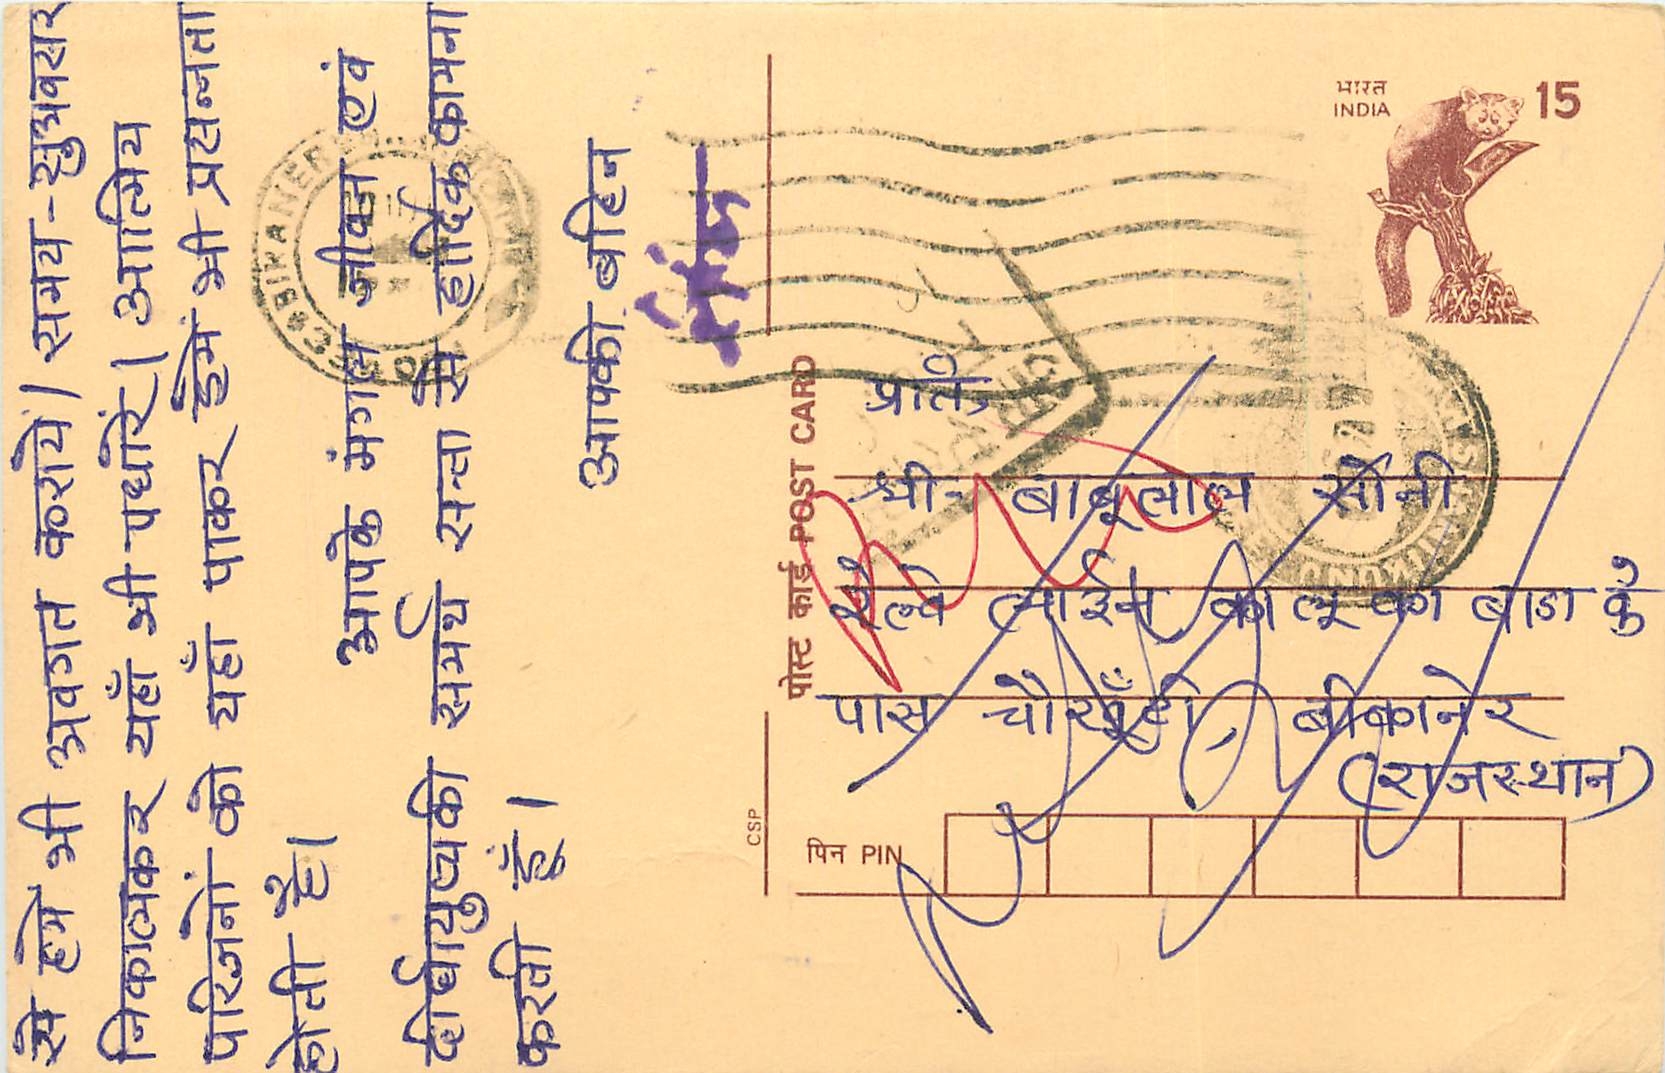 से हमें भी अवगत करायें। समय-सुअवसर
निकालकर यहाँ भी पधारें। आत्मिय
परिजनों को यहाँ पाकर हमें भी प्रसन्नता
होती है।
आपके मंगल जीवन एवं
दीर्घायुष्य की समर्थ सत्ता से हार्दिक कामना
करती हूँ।
आपकी बहिन
BIKANER
भारत
INDIA
15
पोस्ट कार्ड POST CARD
प्रति,
श्री- बाबूलाल सोनी
रेल्वे लाईन कालू का बाडा के
पास चौखूँटी, बीकानेर
(राजस्थान)
CSP
पिन PIN